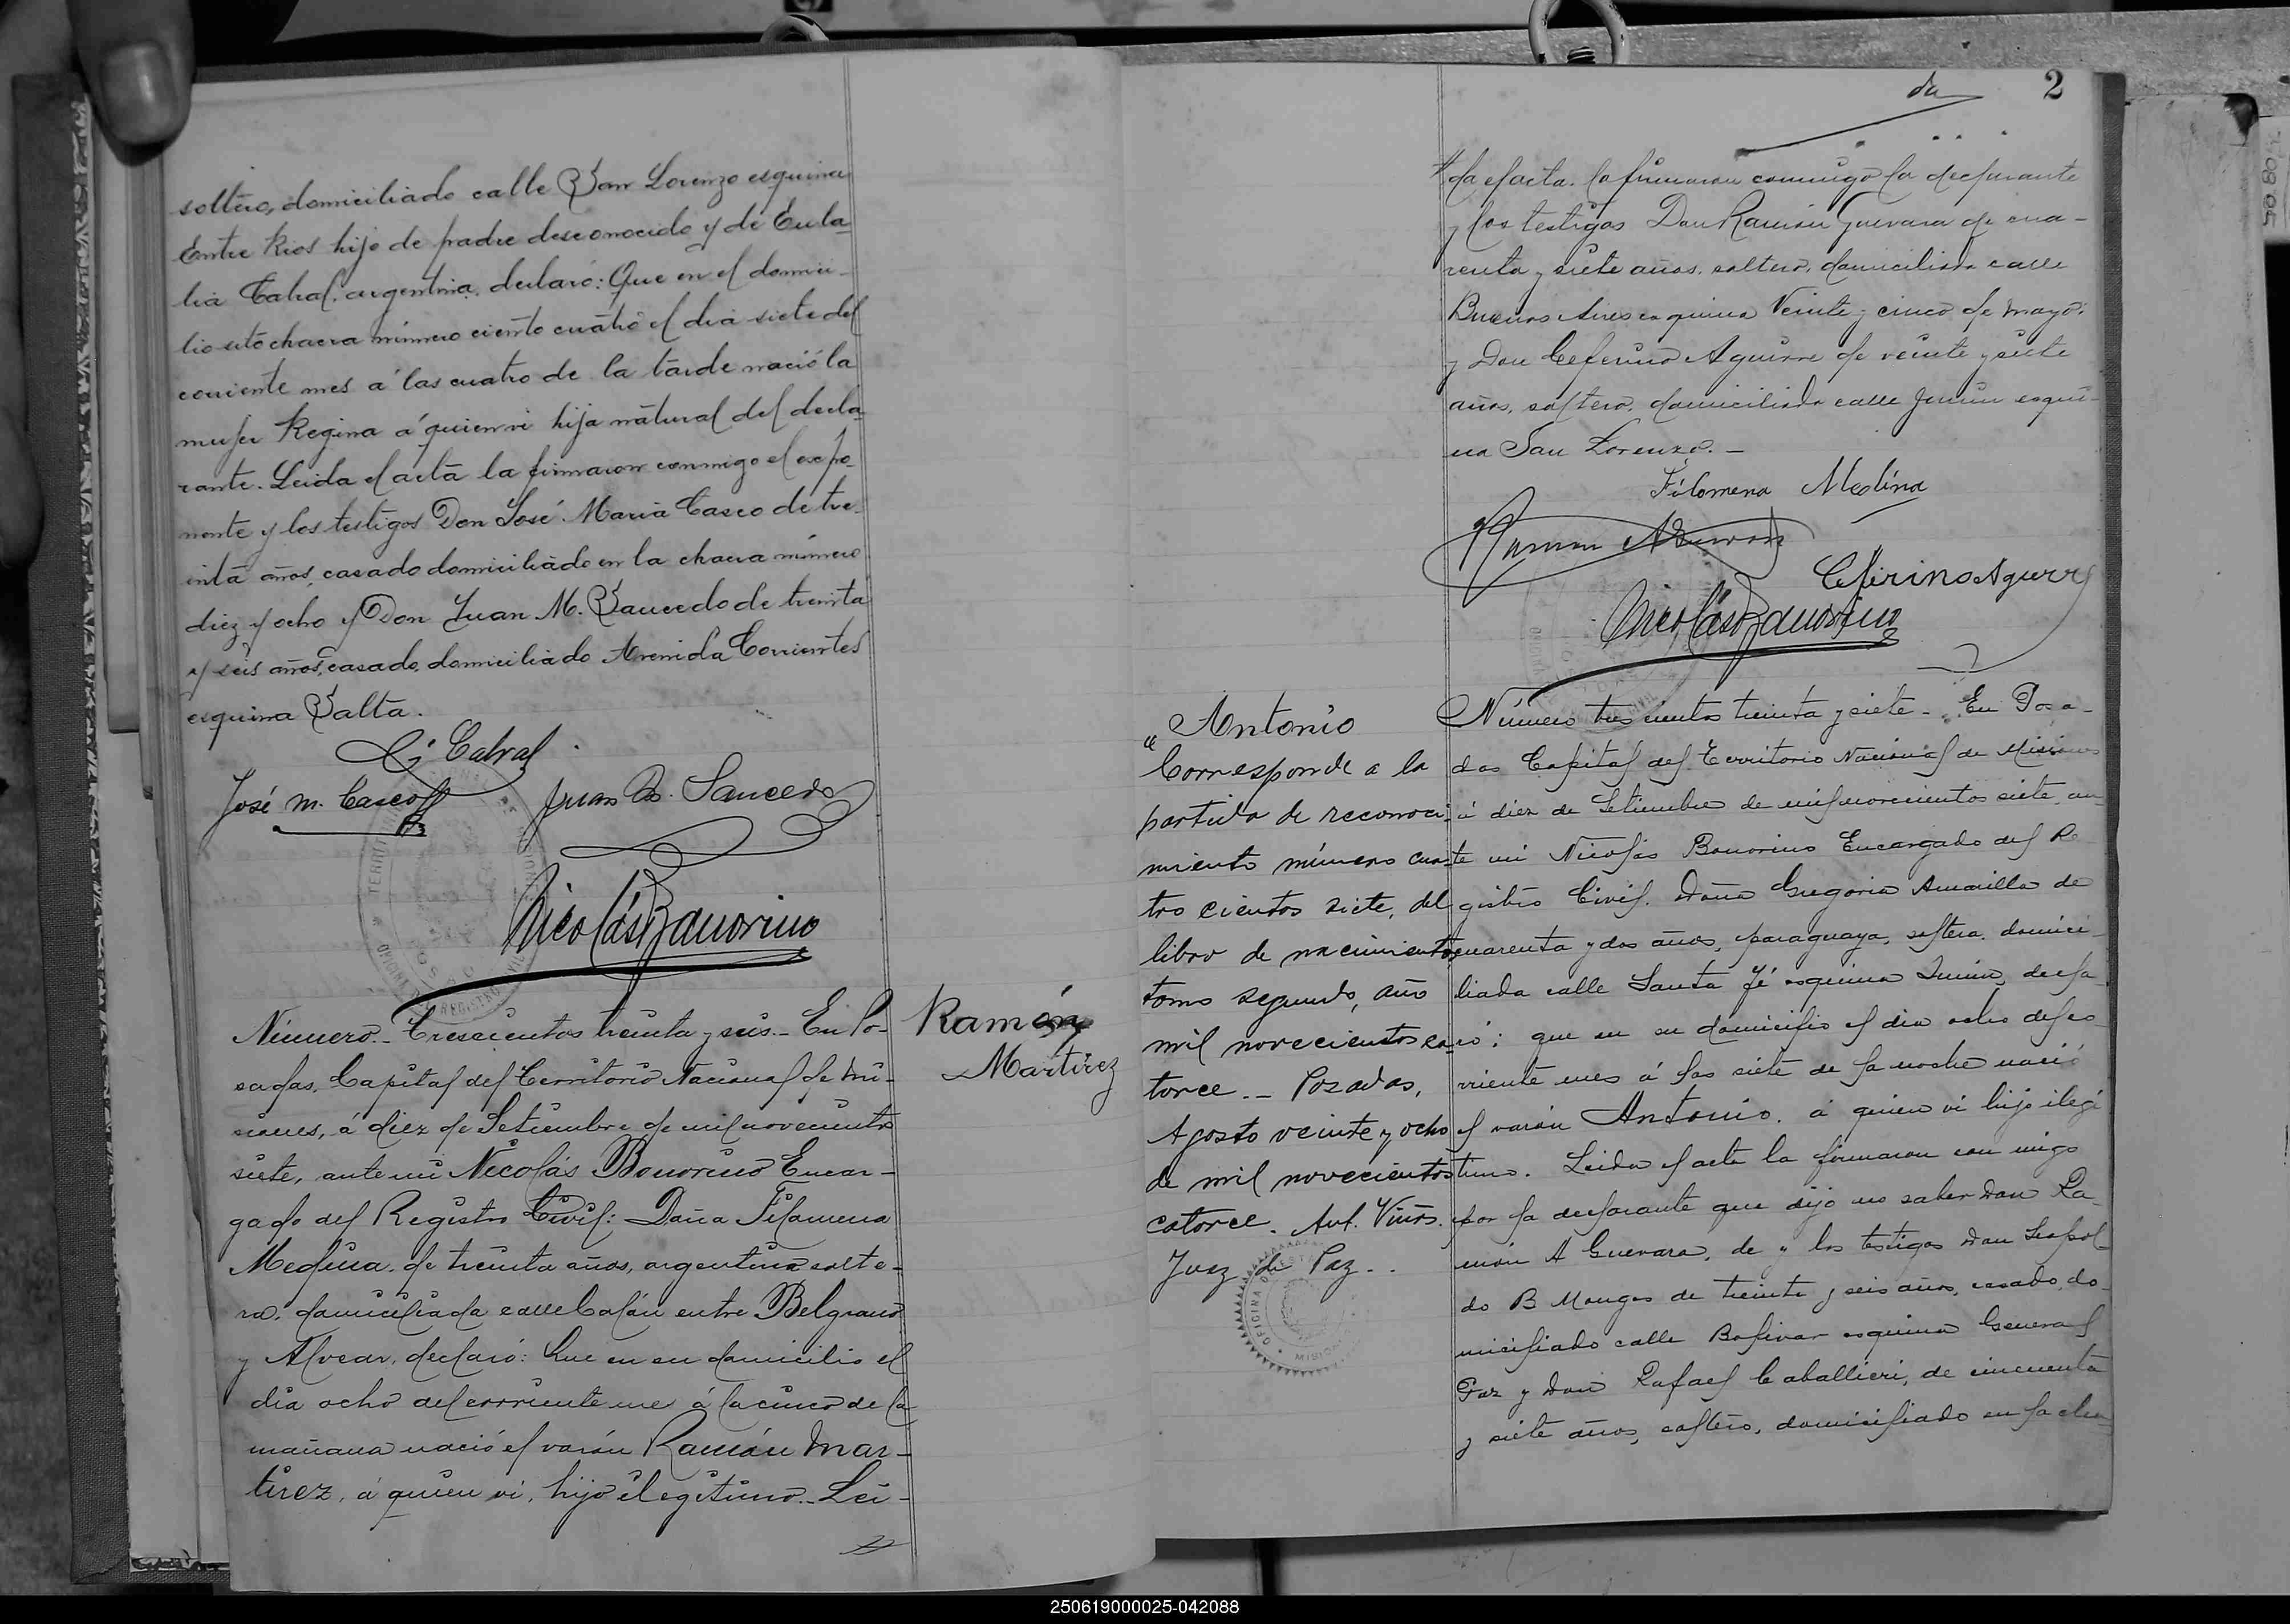 soltero, domiciliado calle San Lorenzo esquina
Entre Rios hijo de padre desconocido y de Eula-
lia Cabral, argentina, declaró: Que en el domici-
lio sito chacra número ciento cuatro el dia siete del
corriente mes á las cuatro de la tarde nació la
mujer Regina á quien vi hija natural del decla-
rante. Leida el acta la firmaron conmigo el expo-
nente y los testigos Don José Maria Casco de tre-
inta años, casado domiciliado en la chacra número
diez y ocho y Don Juan M. Saucedo de treinta
y seis años, casado, domiciliado Avenida Corrientes
esquina Salta.
Cabral
José M. Casco
Juan Saucedo
Nicolás Bonorino
Número.- Trescientos treinta y seis.- En Po-
sadas, Capital del Territorio Nacional de Mi-
siones, á diez de Setiembre de mil novecientos
siete, ante mi Nicolás Bonorino Encar-
gado del Registro Civil: Doña Filomena
Medina, de treinta años, argentina solte-
ra, domiciliada calle Colón entre Belgrano
y Alvear, declaró: Que en su domicilio el
dia ocho del corriente mes á la cinco de la
mañana nació el varón Ramón Mar-
tirez, á quien vi, hijo ilegitimo.- Lei-
Ramón
Martirez
da
2
da el acta, la firmaron conmigo la declarante
y los testigos Don Ramón Guevara de cua-
renta y siete años, soltero, domiciliado calle
Buenos Aires esquina Veinte y cinco de Mayo;
y Don Ceferino Aguirre de veinte y siete
años, soltero, domiciliado calle Junin esqui-
na San Lorenzo.-
Filomena Medina
Ramon
Ceferino Aguirre
Nicolás Bonorino
"Antonio
Corresponde a la
partida de reconoci-
miento número cua-
tro cientos siete, del
libro de nacimientos
tomo segundo, año
mil novecientos ca-
torce.- Posadas,
Agosto veinte y ocho
de mil novecientos
catorce. Ant. Viños.
Juez de Paz..
Número tres cientos treinta y siete.- En Posa-
das Capital del Territorio Nacional de Misiones
á diez de Setiembre de mil novecientos siete, an-
te mi Nicolás Bonorino Encargado del Re-
gistro Civil. Doña Gregoria Amarilla de
cuarenta y dos años, paraguaya, soltera, domici-
liada calle Santa Fé esquina Junin, decla-
ró; que en su domicilio el dia ocho del co-
rriente mes á las siete de la noche nació
el varón Antonio, á quien vi hijo ilegi-
timo. Leida el acta la firmaron con migo
por la declarante que dijo no saber Don Ra-
món A Guevara, de y los testigos Don Leopol-
do B Monges de treinta y seis años, casado, do-
miciliado calle Bolivar esquina General
Paz y Don Rafael Caballieri, de cincuenta
y siete años, soltero, domiciliado en la cha-
250619000025-042088